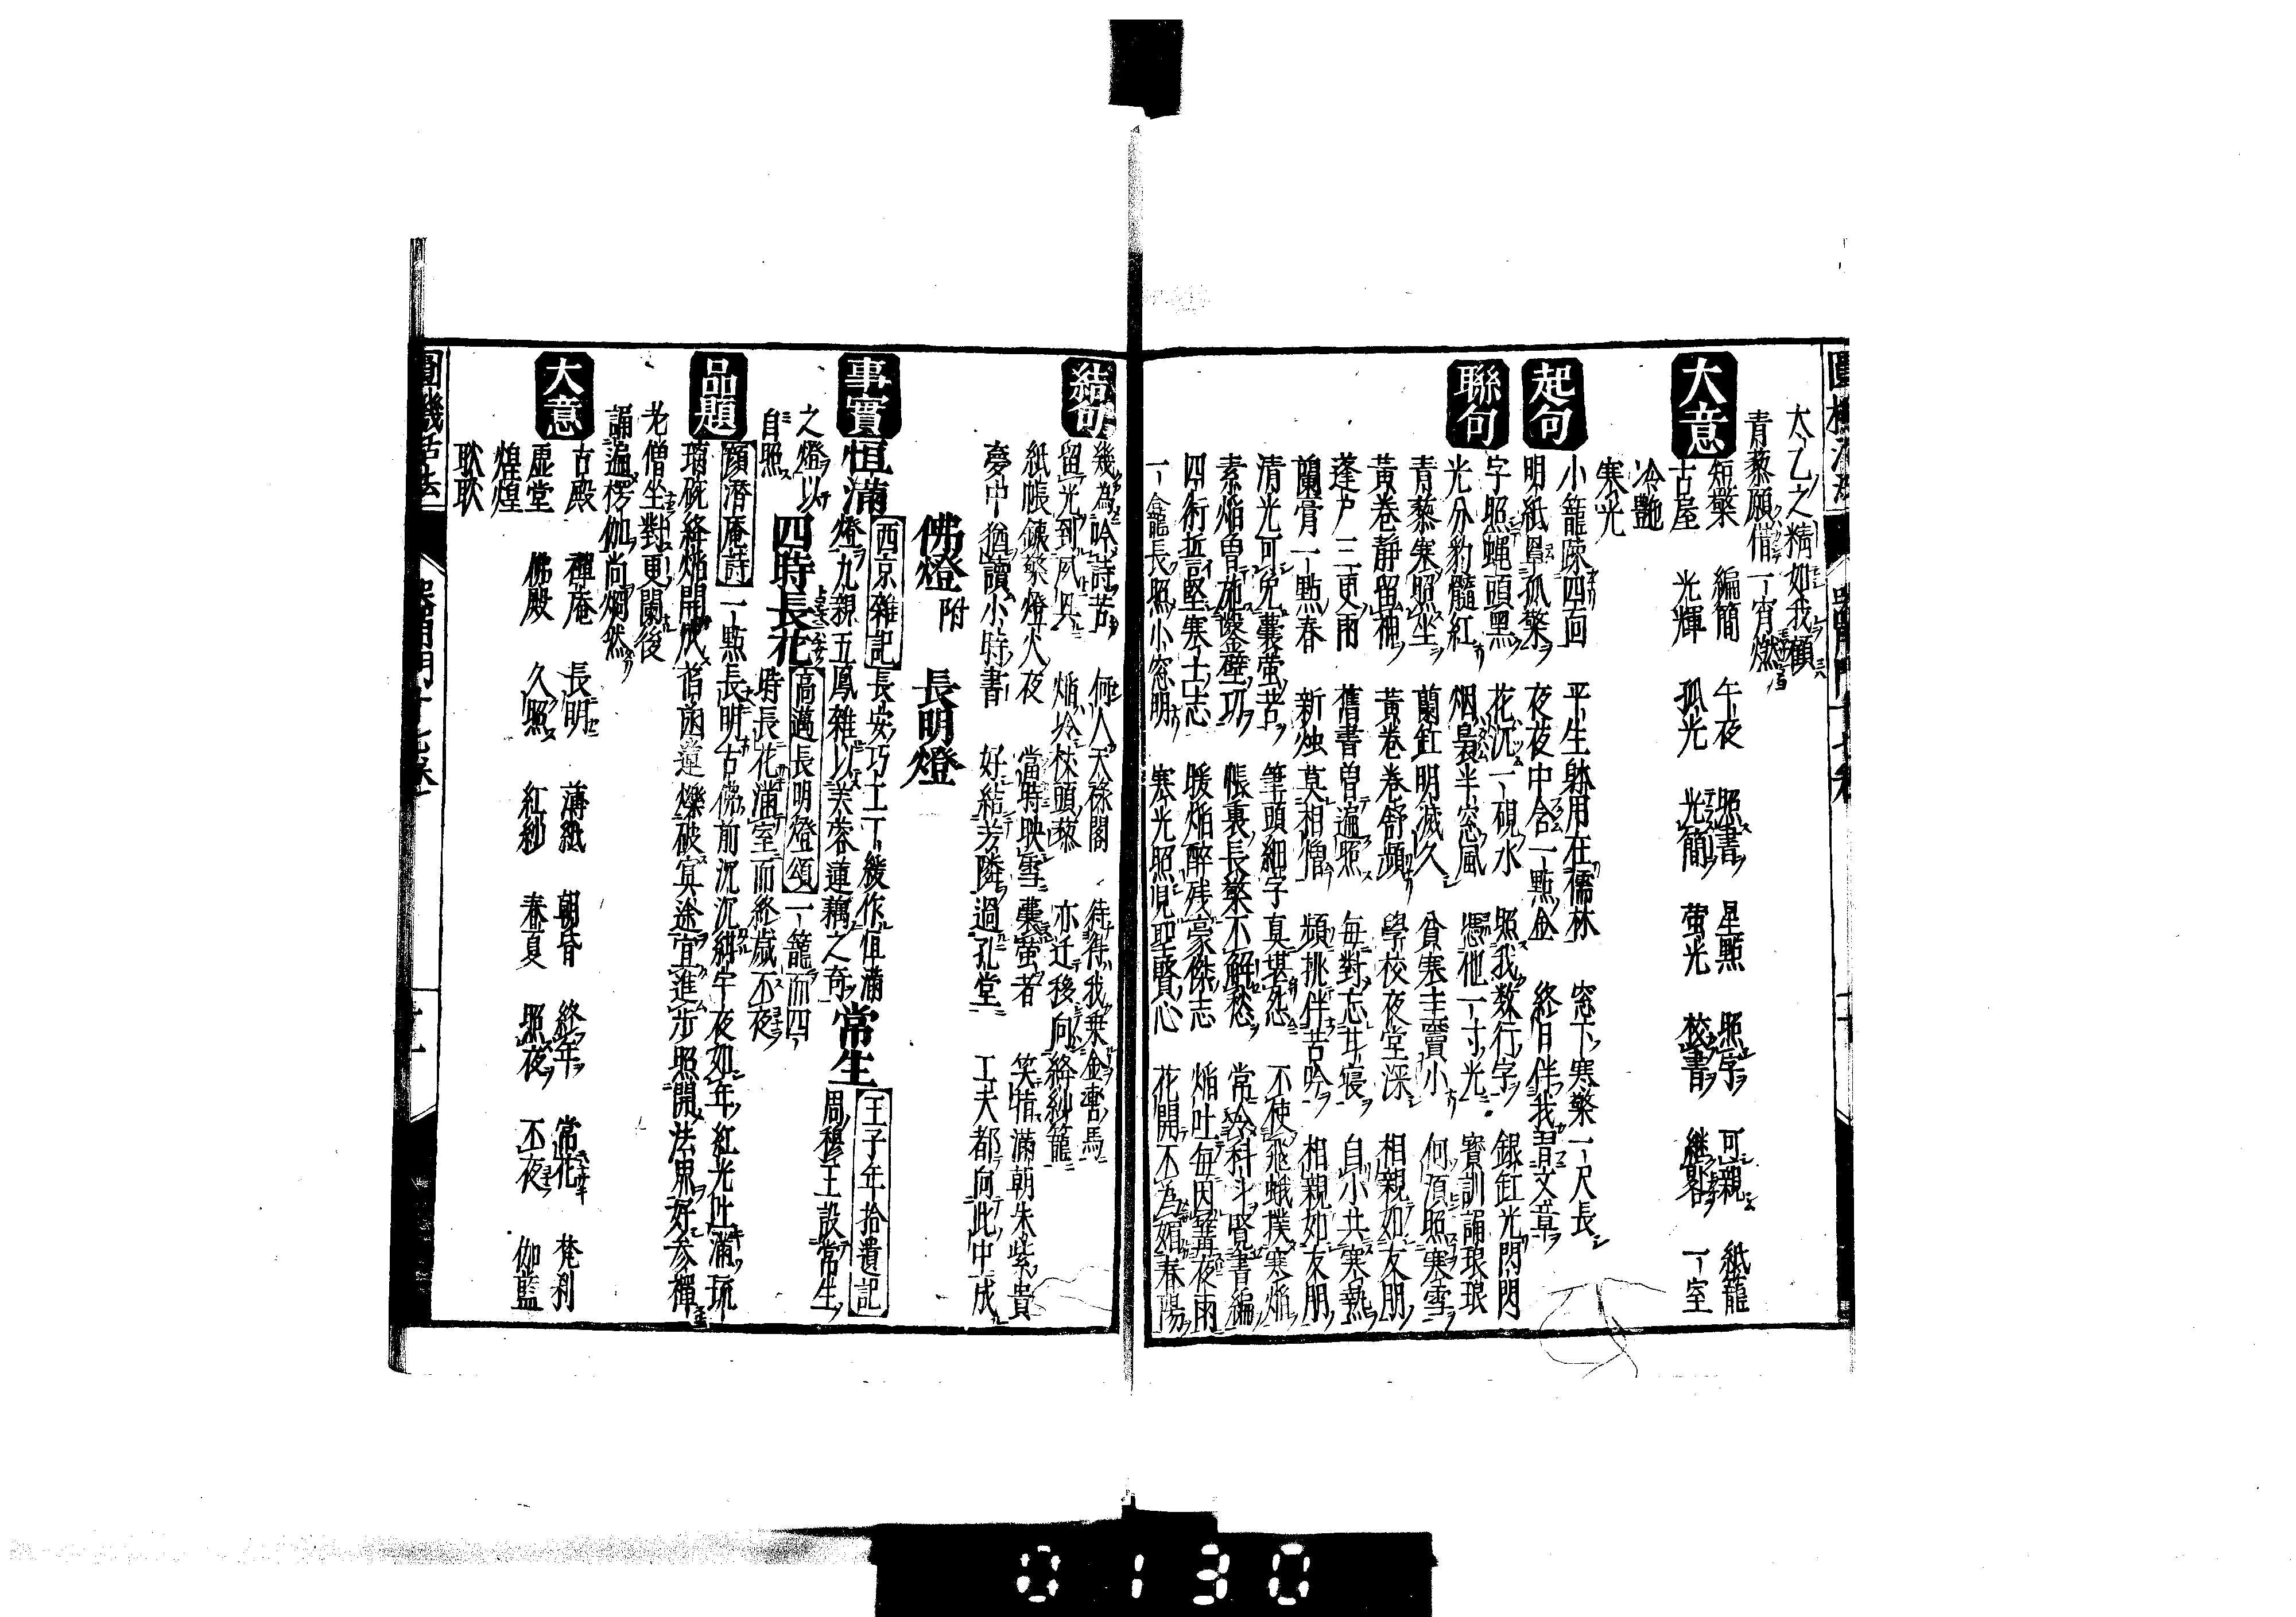 太乙之精如我顧
青藜願借一宵燃
大意
短檠 編簡 午夜 照書 星點 照字 可親 紙籠
古屋 光輝 孤光 光簡 螢光 校書 継晷 一室
冷艶
寒光
起句
小籠疎四面 平生躰用在儒林 窓下寒檠一尺長
明紙 孤檠 夜夜中合一點金 終日伴我習文章
聯句
字照蝿頭黒 花沉一硯水 照我数行字 銀缸光閃閃
光分豹髓紅 烟裊半窓風 憑他一寸光 寳訓誦琅琅
青藜寒照坐 蘭釭明滅久 貧寒圭竇小 何須照寒雪
黄巻静留神 黄巻巻舒頻 學校夜堂深 相親如友朋
蓬户三更雨 舊書曽遍照 毎對忘年寝 自小共寒熱
蘭膏一點春 新燭莫相憎 頻挑伴苦吟 相親如友朋
清光可免囊螢苦 筆頭細字真堪死 不使飛蛾撲寒焔
素焔曽施鑿壁功 帳裏長檠不解愁 常冷科斗覽書編
四術哲堅寒士志 暖焔醉残豪傑志 焔吐毎因篝夜雨
一龕長照小窓明 寒光照見聖賢心 花開不為媚春陽
結句
幾為吟詩苦 何人天禄閣 待得我乗金轡馬
留光到夙具 焔於杖頭藜 亦迁移向絳紗籠
紙帳鐵檠燈火夜 當時映雪囊螢者 笑指滿朝朱紫貴
夢中猶讀小時書 好結芳隣過孔堂 工夫都向此中成
佛燈 附 長明燈
事實
恒滿 西京雜記 長安巧工丁緩作恒滿
燈九親五鳳雜以芙蓉蓮藕之奇 常生 王子年拾遺記 周穆王設常生
之燈以自照 四時長花 高邁長明燈頌 一籠而四
時長花滿室而終歳不夜
品題
顔潜庵詩 一點長明古佛前沉沉絹宇夜如年紅光吐滿琉
璃硯絳焔開成菡萏蓮爍破㝠途宜進歩照開法界好參禪
老僧坐對更闌後
誦遍楞伽尚烱然
大意
古殿 禪庵 長明 薄紙 朝昏 終年 常花 梵刹
虚堂 佛殿 久照 紅紗 春夏 照夜 不夜 伽藍
煌煌
耿耿
0130